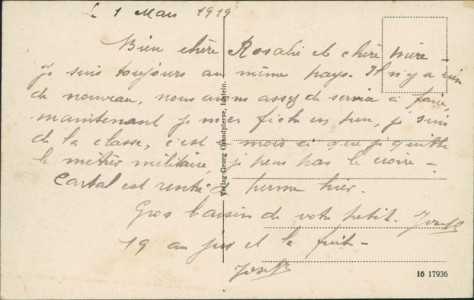 Le 1 Mars 1919
Bien chère Rosalie et chère mère -
Je suis toujours au même pays. Il n'y a rien
de nouveau, nous avons assez de service à faire,
maintenant je m'en fiche un peu, je suis
de la classe, c'est mois ci que je quitte
le métier militaire, je peux pas le croire -
est rentré perme hier.
Gros baisers de votre petit. Joseph
19 au jus et la fuite -
Joseph
Verlag Georg
16 17936